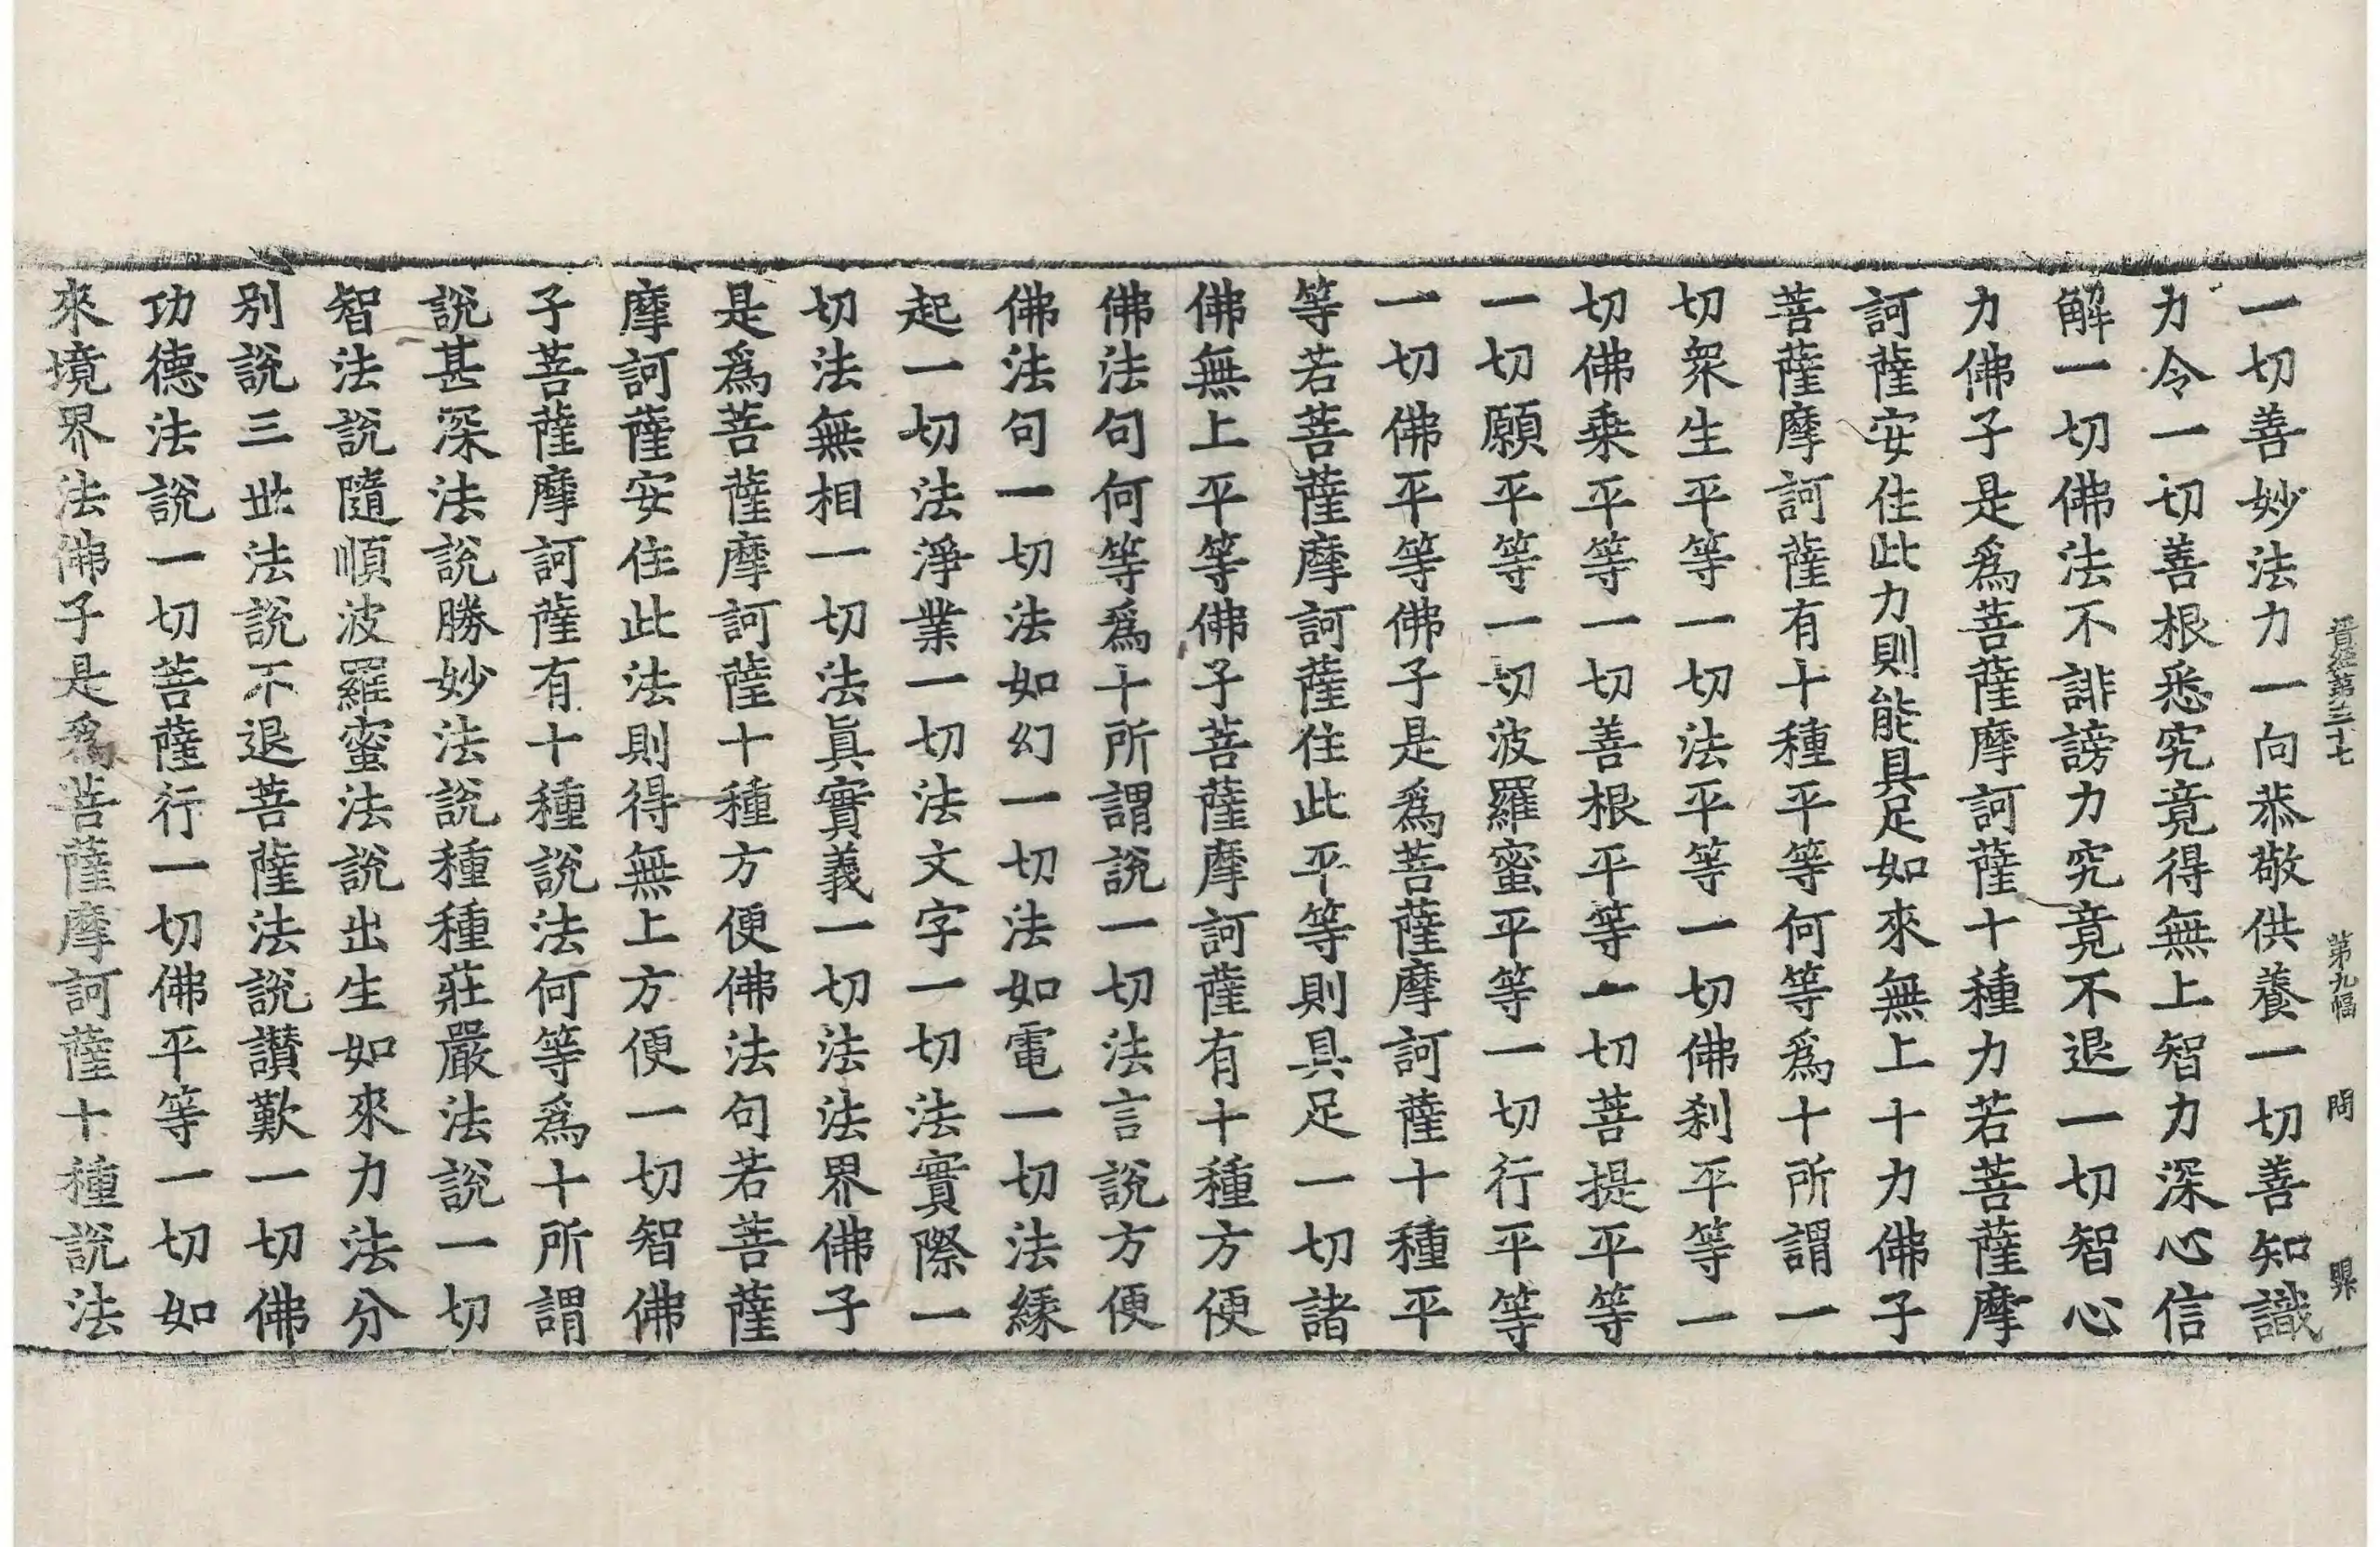 晋經第三十七 第九幅 問
一切善妙法力一向恭敬供養一切善知識
力令一切善根悉究竟得無上智力深心信
解一切佛法不誹謗力究竟不退一切智心
力佛子是爲菩薩摩訶薩十種力若菩薩摩
訶薩安住此力則能具足如來無上十力佛子
菩薩摩訶薩有十種平等何等爲十所謂一
切衆生平等一切法平等一切佛刹平等一
切佛乘平等一切善根平等一切菩提平等
一切願平等一切波羅蜜平等一切行平等
一切佛平等佛子是爲菩薩摩訶薩十種平
等若菩薩摩訶薩住此平等則具足一切諸
佛無上平等佛子菩薩摩訶薩有十種方便
佛法句何等爲十所謂說一切法言說方便
佛法句一切法如幻一切法如電一切法緣
起一切法淨業一切法文字一切法實際一
切法無相一切法眞實義一切法法界佛子
是爲菩薩摩訶薩十種方便佛法句若菩薩
摩訶薩安住此法則得無上方便一切智佛
子菩薩摩訶薩有十種說法何等爲十所謂
說甚深法說勝妙法說種種莊嚴法說一切
智法說隨順波羅蜜法說出生如來力法分
別說三世法說不退菩薩法說讃歎一切佛
功德法說一切菩薩行一切佛平等一切如
來境界法佛子是爲菩薩摩訶薩十種說法